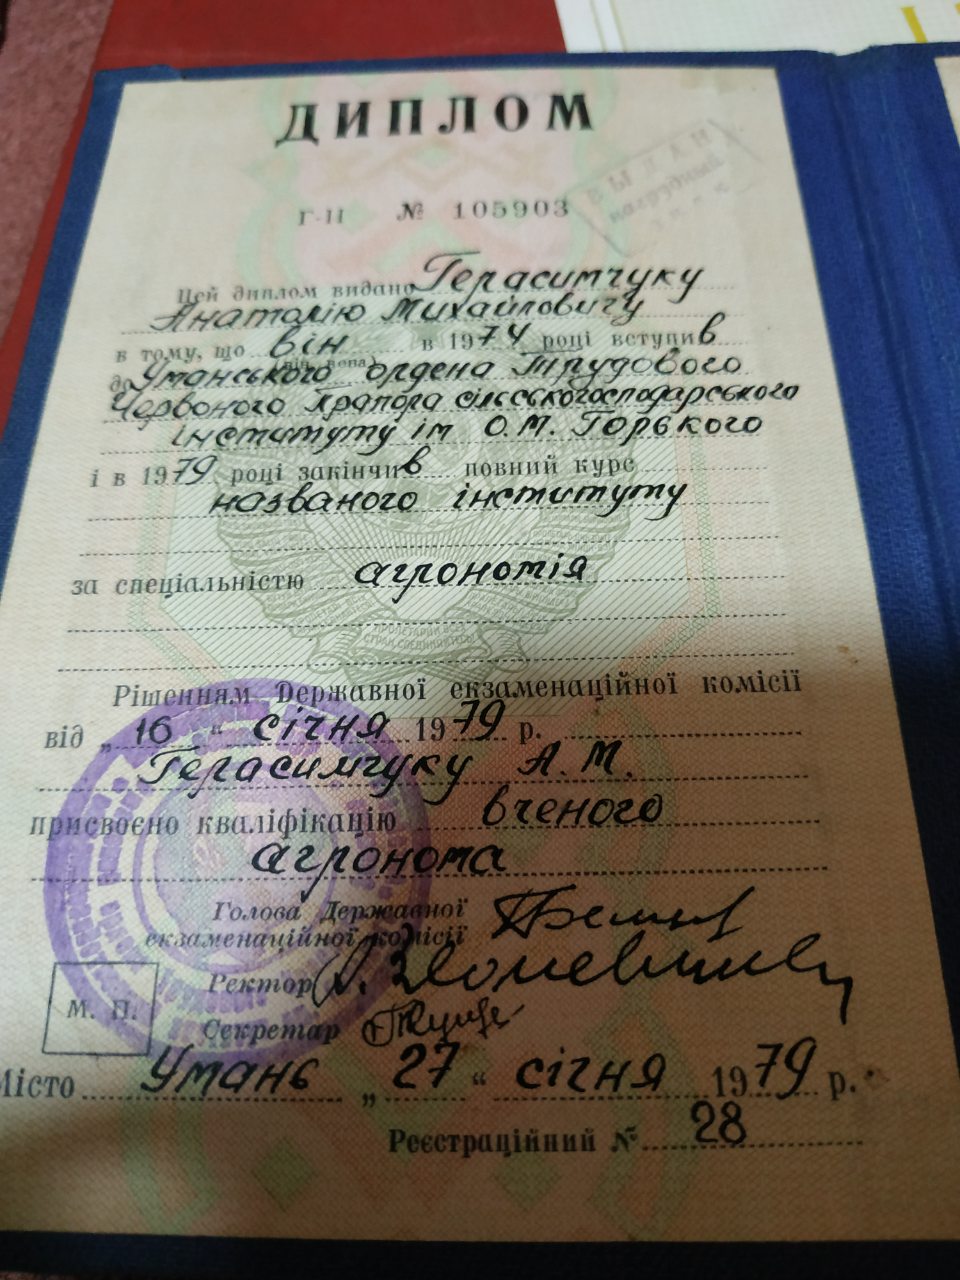 ДИПЛОМ
Г-II № 105903
Цей диплом видано Герасимчуку
Анатолію Михайловичу
в тому, що він в 1974 році вступив
до Уманського ордена Трудового
Червоного Прапора сільськогосподарського
інституту ім О.М. Горького
і в 1979 році закінчив повний курс
названого інституту
за спеціальністю агрономія
ПРОЛЕТАРИИ ВСЕХ
СТРАН, СОЕДИНЯЙТЕСЬ
Рішенням Державної екзаменаційної комісії
від „16“ січня 1979 р.
Герасимчуку А.М.
присвоєно кваліфікацію вченого
агронома
Голова Державної
екзаменаційної комісії
Ректор
Секретар
М. П.
Місто Умань „27“ січня 1979 р.
Реєстраційний № 28